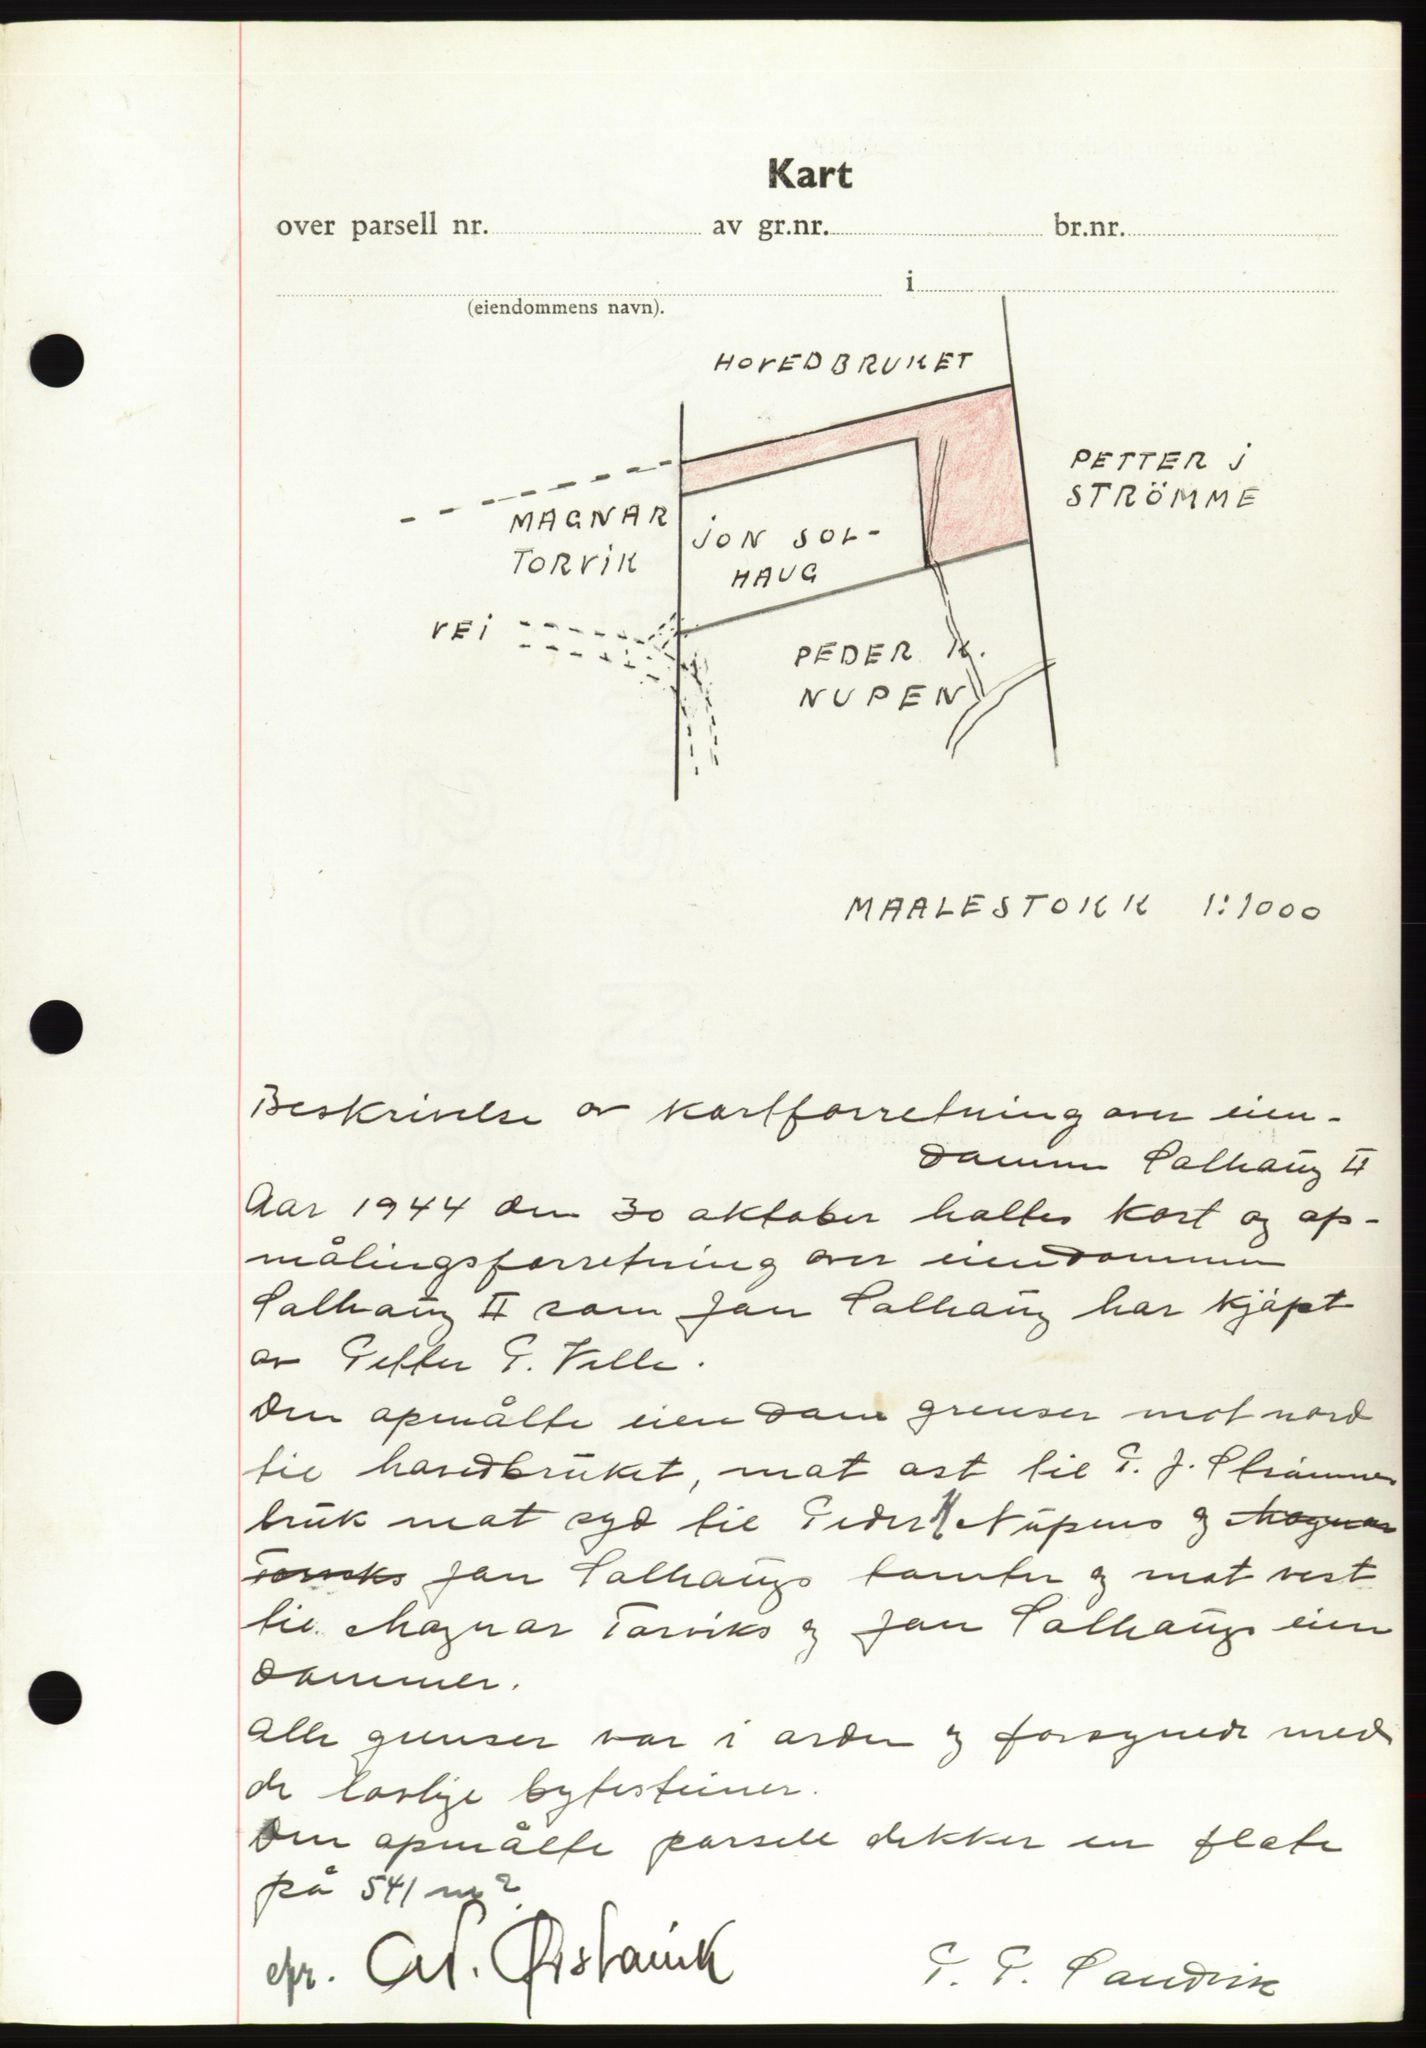 Kart
over parsell nr. av gr.nr. br.nr.
i
(eiendommens navn).
HOVEDBRUKET
PETTER J
STRÖMME
MAGNAR
TORVIK
JON SOL-
HAUG
VEI
PEDER K.
NUPEN
MAALESTOKK 1:1000
Beskrivelse av kartforretning over eien-
dommen Solhaug II
Aar 1944 den 30 oktober holtes kart og op-
målingsforretning over eiendommen
Solhaug II som Jon Solhaug har kjøpt
av Petter P. Velle.
Den opmålte eiendom grenser mot nord
til hovedbruket, mot ost til P. J. Strömmes
bruk mot syd til Peder K Nupens og Magnar
Torviks Jon Solhaugs tomter og mot vest
til Magnar Torviks og Jon Solhaugs eien
dommer.
Alle grenser var i orden og forsynede med
de lovlige bytesteiner.
Den opmålte parsell dekker en flate
på 541 m².
P. P. Sandvik